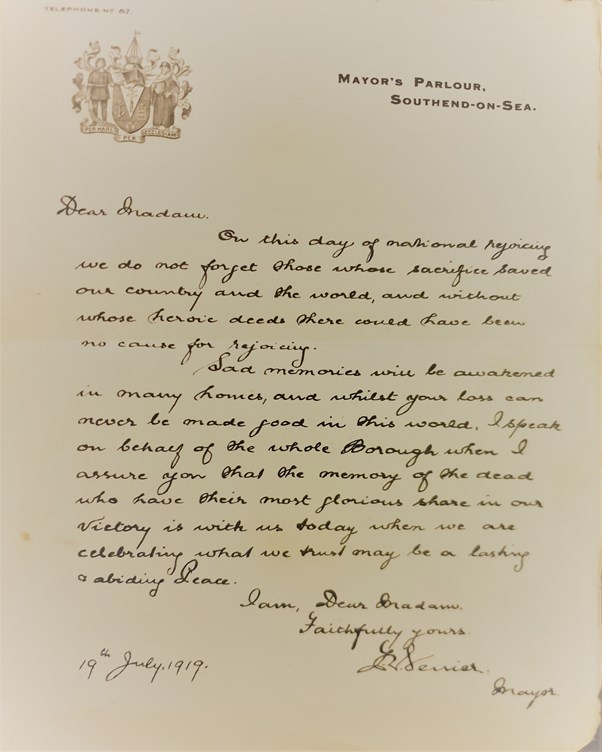 TELEPHONE Nº 87.
MAYOR'S PARLOUR,
SOUTHEND-ON-SEA.
PER MARE
PER
ECCLESIAM
Dear Madam.
On this day of national rejoicing
we do not forget those whose sacrifice saved
our country and the world, and without
whose heroic deeds there could have been
no cause for rejoicing.
Sad memories will be awakened
in many homes, and whilst your loss can
never be made good in this world, I speak
on behalf of the whole Borough when I
assure you that the memory of the dead
who have their most glorious share in our
Victory is with us today when we are
celebrating what we trust may be a lasting
& abiding Peace.
I am, Dear Madam.
Faithfully yours.
19th July. 1919.
Mayor